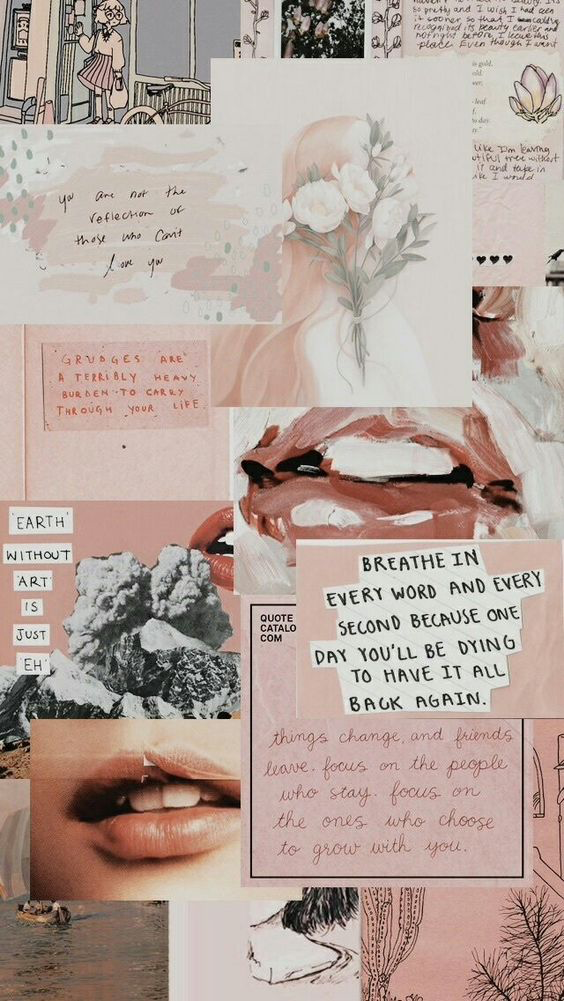 so pretty and I wish I had seen
it sooner so that I
recognized its beauty earlier and
not right before I leave this
place. Even though I want
gold.
old.
er.
-leaf
f.
o day
y."
like I'm leaving
utiful tree without
it and take in
ike I would
you are not the
reflection of
those who can't
love you
GRUDGES ARE
A TERRIBLY HEAVY
BURDEN TO CARRY
THROUGH YOUR LIFE.
'EARTH'
WITHOUT
'ART'
IS
JUST
'EH'
BREATHE IN
EVERY WORD AND EVERY
SECOND BECAUSE ONE
DAY YOU'LL BE DYING
TO HAVE IT ALL
BACK AGAIN.
QUOTE
CATALO
COM
things change, and friends
leave. focus on the people
who stay. focus on
the ones who choose
to grow with you.